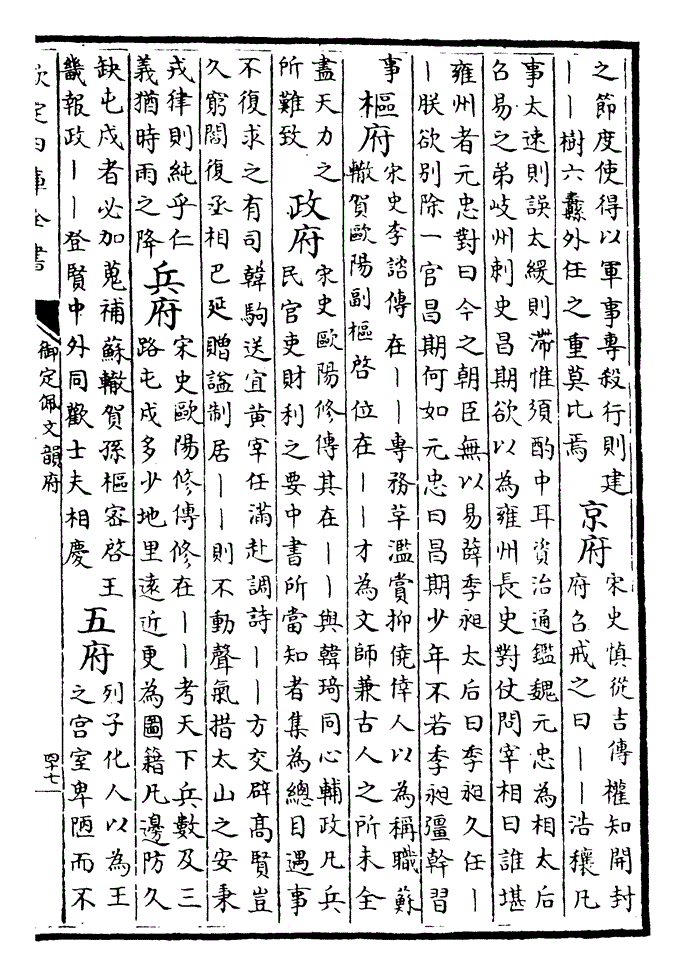 之節度使得以軍事專殺行則建
丨丨樹六纛外任之重莫比焉　京府　宋史慎從吉傳權知開封
府召戒之曰丨丨浩穰凡
事太速則誤太緩則滯惟須酌中耳資治通鑑魏元忠為相太后
召易之弟岐州刺史昌期欲以為雍州長史對仗問宰相曰誰堪
雍州者元忠對曰今之朝臣無以易薛季昶太后曰季昶久任丨
丨朕欲別除一官昌期何如元忠曰昌期少年不若季昶彊幹習
事　樞府　宋史李諮傳在丨丨專務革濫賞抑僥倖人以為稱職蘇
轍賀歐陽副樞啓位在丨丨才為文師兼古人之所未全
盡天力之
所難致　政府　宋史歐陽修傳其在丨丨與韓琦同心輔政凡兵
民官吏財利之要中書所當知者集為總目遇事
不復求之有司韓駒送宜黃宰任滿赴調詩丨丨方交辟高賢豈
久窮閻復丞相巴延贈諡制居丨丨則不動聲氣措太山之安秉
戎律則純乎仁
義猶時雨之降　兵府　宋史歐陽修傳修在丨丨考天下兵數及三
路屯戍多少地里遠近更為圖籍凡邊防久
缺屯戍者必加蒐補蘇轍賀孫樞密啓王
畿報政丨丨登賢中外同歡士夫相慶　五府　列子化人以為王
之宫室卑陋而不
欽定四庫全書
御定佩文韻府
四十七